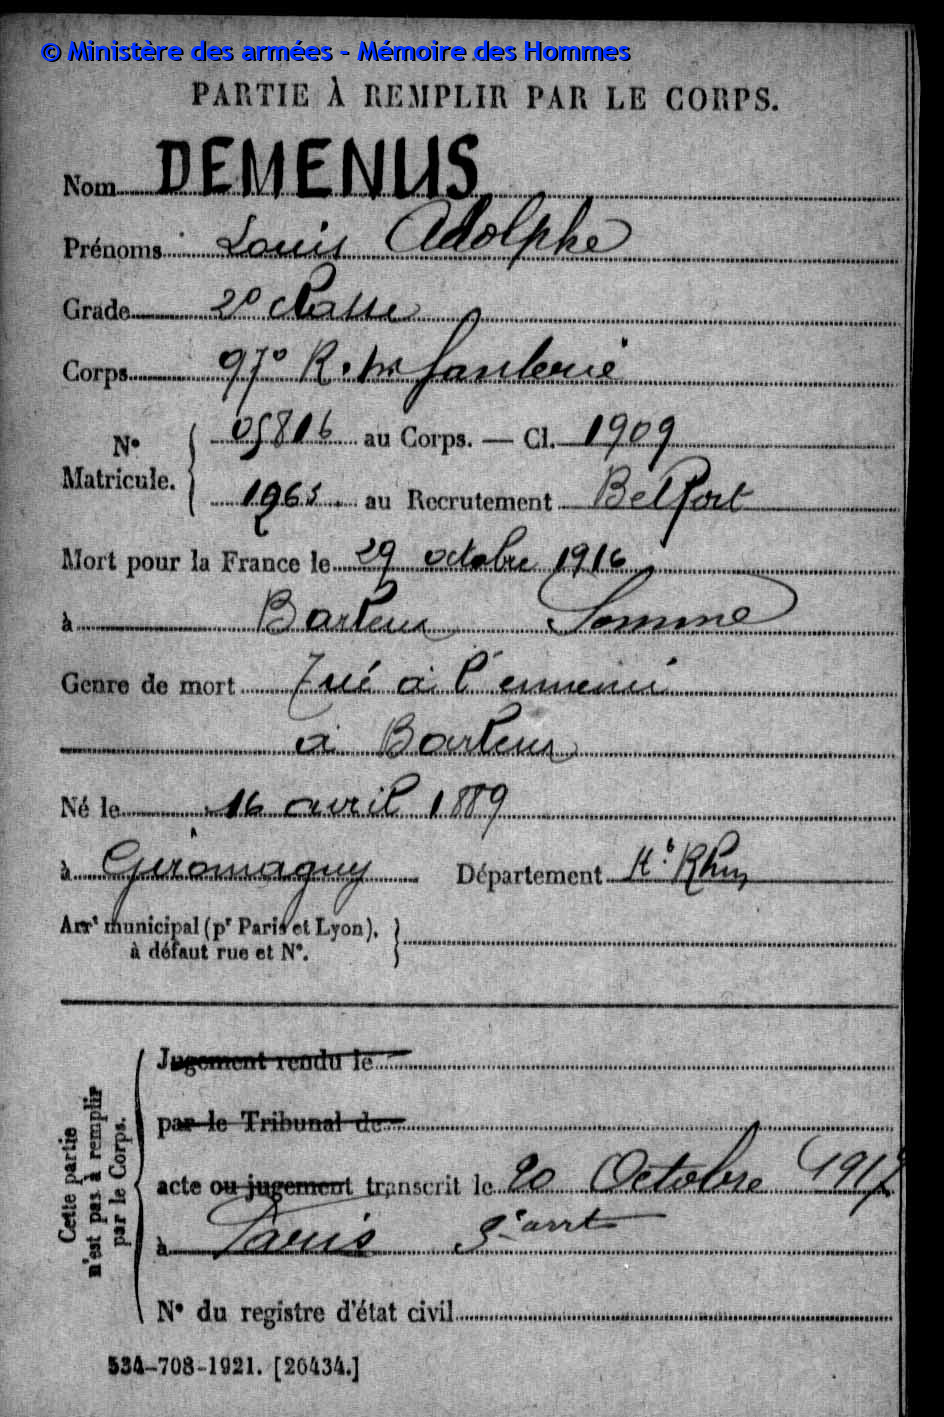 © Ministère des armées - Mémoire des Hommes
PARTIE À REMPLIR PAR LE CORPS.
Nom DEMENUS
Prénoms Louis Adolphe
Grade 2e classe
Corps 97e R. Infanterie
No Matricule. { 05816 au Corps. — Cl. 1909
1965 au Recrutement Belfort
Mort pour la France le 29 octobre 1916
à Barleux Somme
Genre de mort Tué à l'ennemi
à Barleux
Né le 16 avril 1889
à Giromagny Département Ht Rhin
Arrt municipal (pr Paris et Lyon), }
à défaut rue et No.
Cette partie n'est pas à remplir par le Corps.
Jugement rendu le
par le Tribunal de
acte ou jugement transcrit le 20 Octobre 1917
à Paris arrt
No du registre d'état civil
534-708-1921. [26434.]